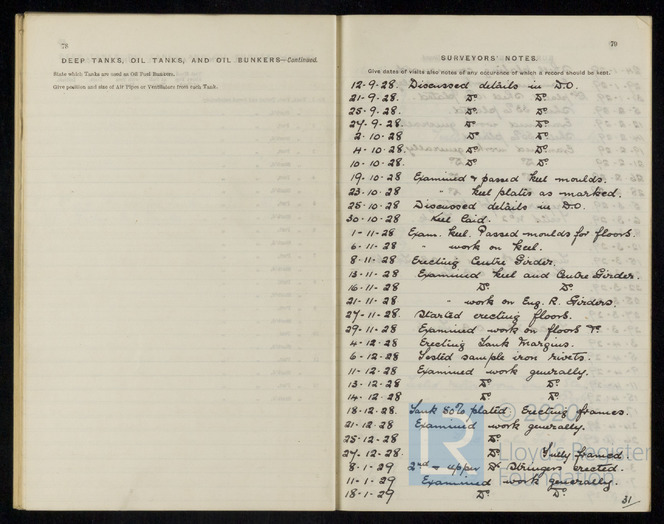 78
DEEP TANKS, OIL TANKS, AND OIL BUNKERS—Continued.
State which Tanks are used as Oil Fuel Bunkers.
Give position and size of Air Pipes or Ventilators from each Tank.
79
SURVEYORS' NOTES.
Give dates of visits also notes of any occurence of which a record should be kept.
12-9-28. Discussed details in D.O.
21-9-28. Do Do
25-9-28. Do Do
27-9-28 Do Do
2-10-28 Do Do
4-10-28. Do Do
10-10-28. Do Do
19.10-28 Examined & passed keel moulds.
23-10-28 " keel plates as marked.
25-10-28 Discussed details in D.O.
30-10-28 Keel laid.
1-11-28 Exam. keel. Passed moulds for floors.
6-11-28 " work on keel.
8-11-28 Erecting Centre Girder.
13-11-28 Examined keel and Centre Girder.
16-11-28 Do Do
21-11-28 " work on Eng. R. Girders.
27-11-28. Started erecting floors.
29-11-28 Examined work on floors &c.
4-12-28 Erecting Tank Margins.
6-12-28 Tested sample iron rivets.
11-12-28 Examined work generally.
13-12-28 Do Do
14-12-28 Do Do
18-12-28. Tank 80% plated. Erecting frames.
21-12-28 Examined work generally.
25-12-28 Do
27-12-28. Do Fully framed.
8-1-29 2nd & upper Dk Stringers erected.
11-1-29 Examined work generally.
18-1-29 Do Do
31
© 2020
LR
Lloyd's Register
Foundation